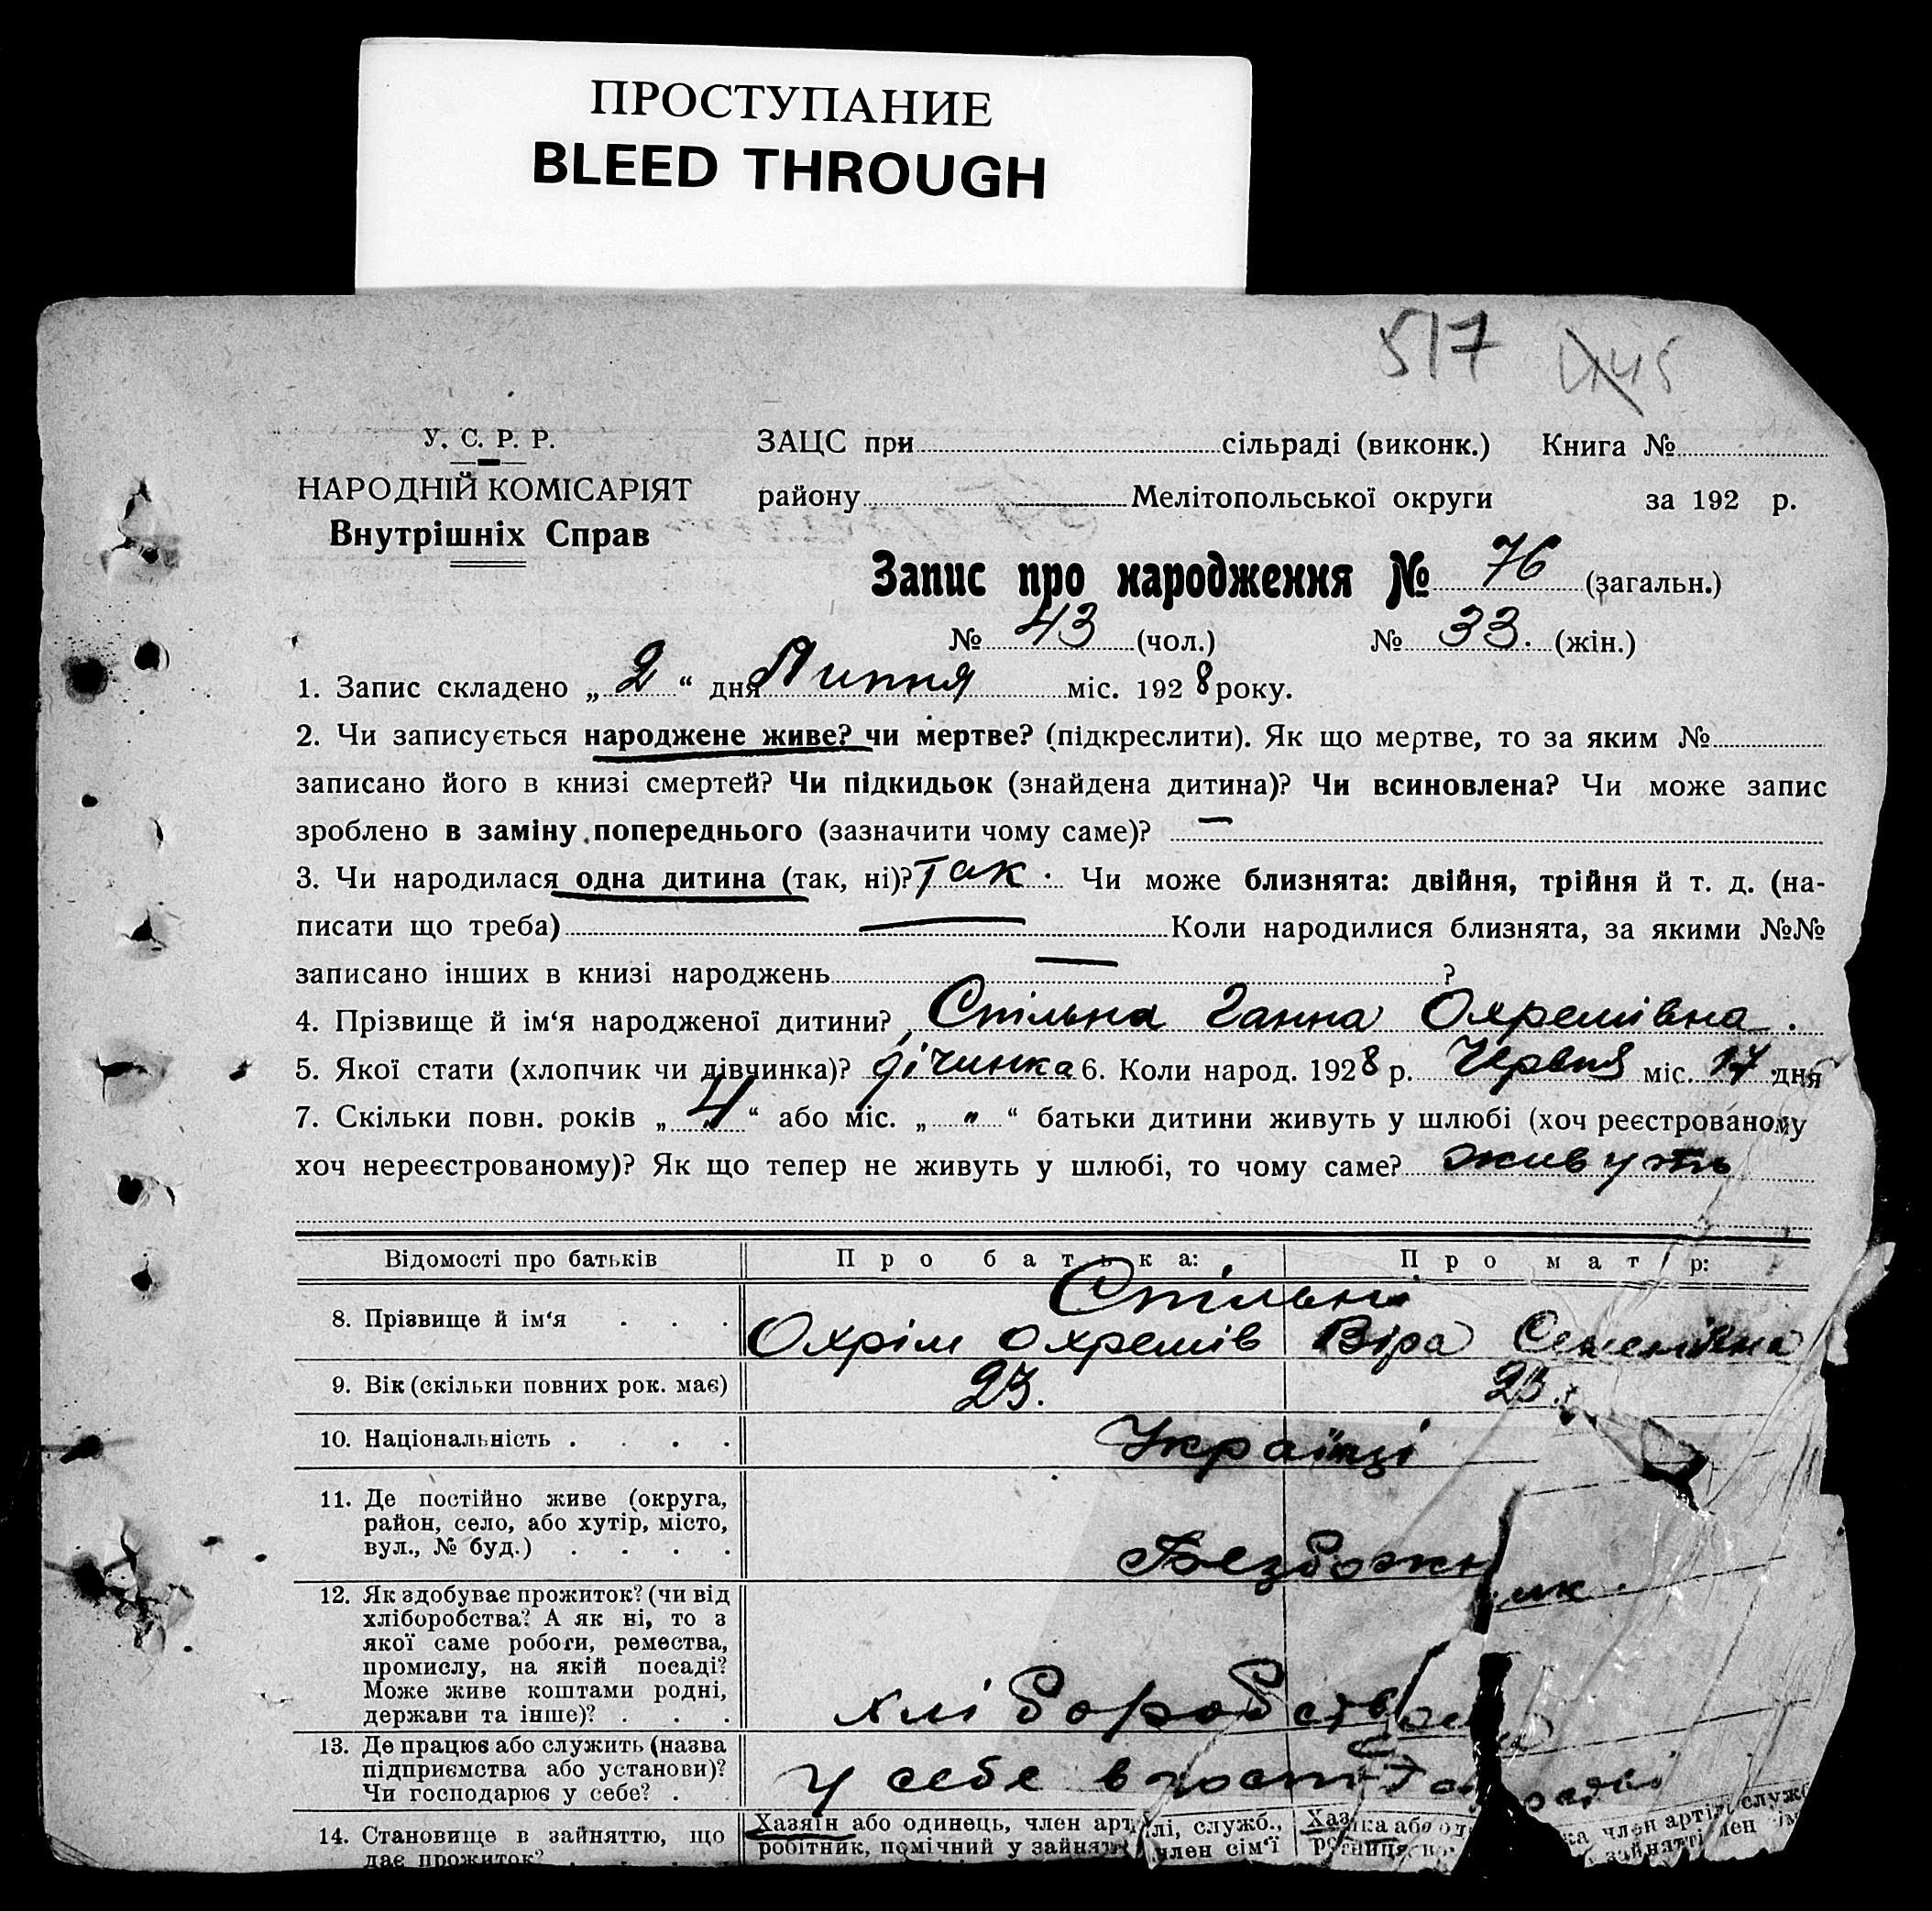 ПРОСТУПАНИЕ
BLEED THROUGH
517
У. С. Р. Р.
НАРОДНІЙ КОМІСАРІЯТ
Внутрішніх Справ
ЗАЦС при сільраді (виконк.) Книга №
району Мелітопольської округи за 192 р.
Запис про народження № 76 (загальн.)
№ 43 (чол.) № 33. (жін.)
1. Запис складено „ 2 “ дня Липня міс. 1928 року.
2. Чи записується народжене живе? чи мертве? (підкреслити). Як що мертве, то за яким №
записано його в книзі смертей? Чи підкидьок (знайдена дитина)? Чи всиновлена? Чи може запис
зроблено в заміну попереднього (зазначити чому саме)? —
3. Чи народилася одна дитина (так, ні)? Так. Чи може близнята: двійня, трійня й т. д. (на-
писати що треба) — Коли народилися близнята, за якими №№
записано інших в книзі народжень — ?
4. Прізвище й ім‘я народженої дитини? Стільна Ганна Охремівна.
5. Якої стати (хлопчик чи дівчинка)? дічинка 6. Коли народ. 1928 р. Червня міс. 17 дня
7. Скільки повн. років „ 4 “ або міс. „ " “ батьки дитини живуть у шлюбі (хоч реєстрованому
хоч нереєстрованому)? Як що тепер не живуть у шлюбі, то чому саме? живуть
Відомості про батьків Про батька: Про матір:
Стільні
8. Прізвище й ім‘я . . . Охрім Охремів Віра Семенівна
9. Вік (скільки повних рок. має) 23. 23.
10. Національність . . . . Українці
11. Де постійно живе (округа,
район, село, або хутір, місто,
вул., № буд.) . . . . Безбожник.
12. Як здобуває прожиток? (чи від
хліборобства? А як ні, то з
якої саме роботи, ремества,
промислу, на якій посаді?
Може живе коштами родні,
держави та інше)? . . . хліборобством
13. Де працює або служить (назва
підприємства або установи)?
Чи господарює у себе? . у себе в
14. Становище в зайняттю, що
дає прожиток?
Хазяїн або одинець, член артілі, служб.,
робітник, помічний у зайнятті член сім‘ї